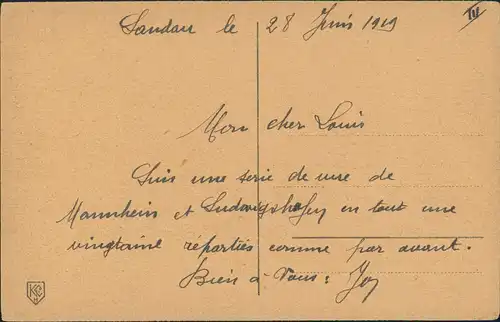 Landau le 28 Juin 1919
III
Mon cher Louis
Suis une serie de vue de
Mannheim et Ludwigshafen en tout une
vingtaine réparties comme par avant.
Bien à Vous: